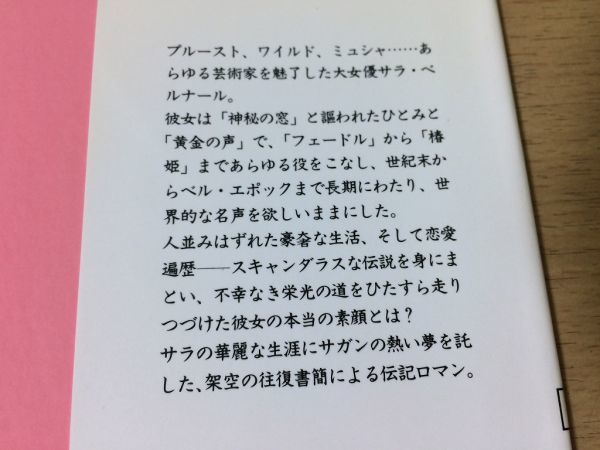 プルースト、ワイルド、ミュシャ……あ
らゆる芸術家を魅了した大女優サラ・ベ
ルナール。
彼女は「神秘の窓」と謳われたひとみと
「黄金の声」で、「フェードル」から「椿
姫」まであらゆる役をこなし、世紀末か
らベル・エポックまで長期にわたり、世
界的な名声を欲しいままにした。
人並みはずれた豪奢な生活、そして恋愛
遍歴――スキャンダラスな伝説を身にま
とい、不幸なき栄光の道をひたすら走り
つづけた彼女の本当の素顔とは？
サラの華麗な生涯にサガンの熱い夢を託
した、架空の往復書簡による伝記ロマン。